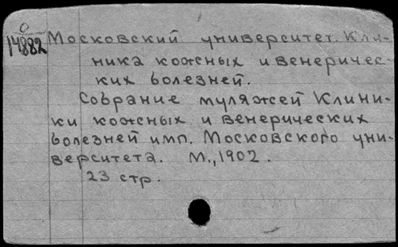 О
14882
Московский университет. Кли-
ника кожных и венеричес-
ких болезней.
Собрание муляжей Клини-
ки кожных и венерических
болезней имп. Московского уни-
верситета. М., 1902.
23 стр.